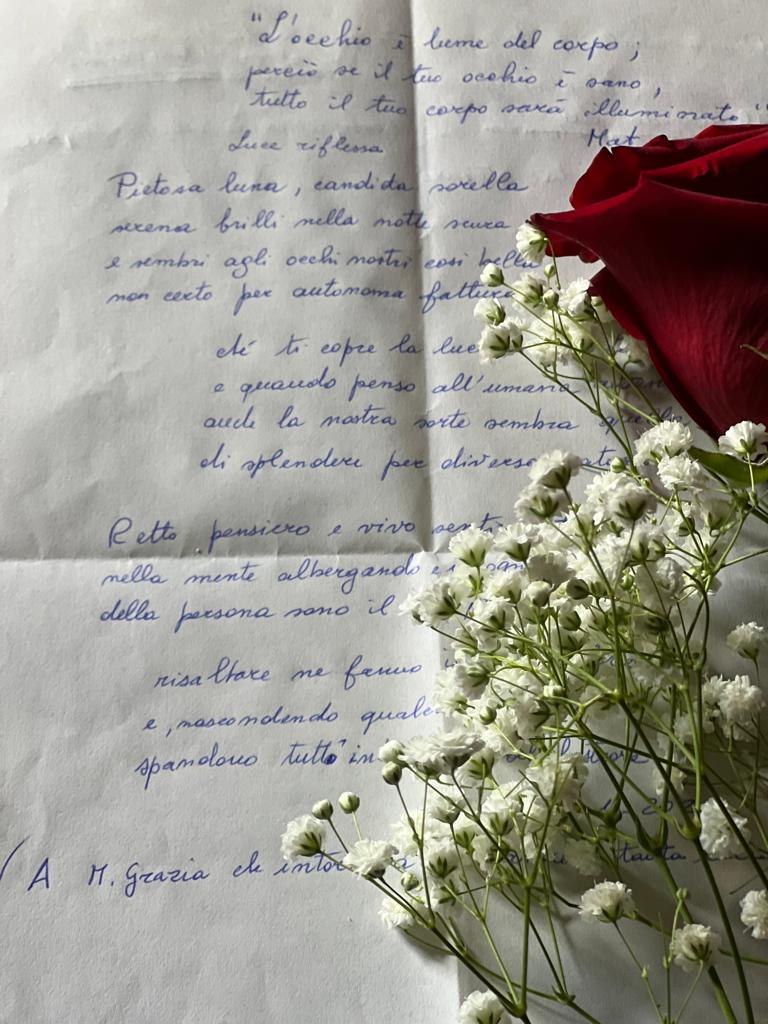 "L'occhio è lume del corpo;
perciò se il tuo occhio è sano,
tutto il tuo corpo sarà illuminato"
Mat
Luce riflessa
Pietosa luna, candida sorella
serena brilli nella notte scura
e sembri agli occhi nostri così bella
non certo per autonoma fattura
ché ti copre la luce
e quando penso all'umana
anche la nostra sorte sembra quella
di splendere per diverse
Retto pensiero e vivo
nella mente albergando e
della persona sono il
risaltare ne fanno
e, nascondendo
spandono tutt'in
A M. Grazia che